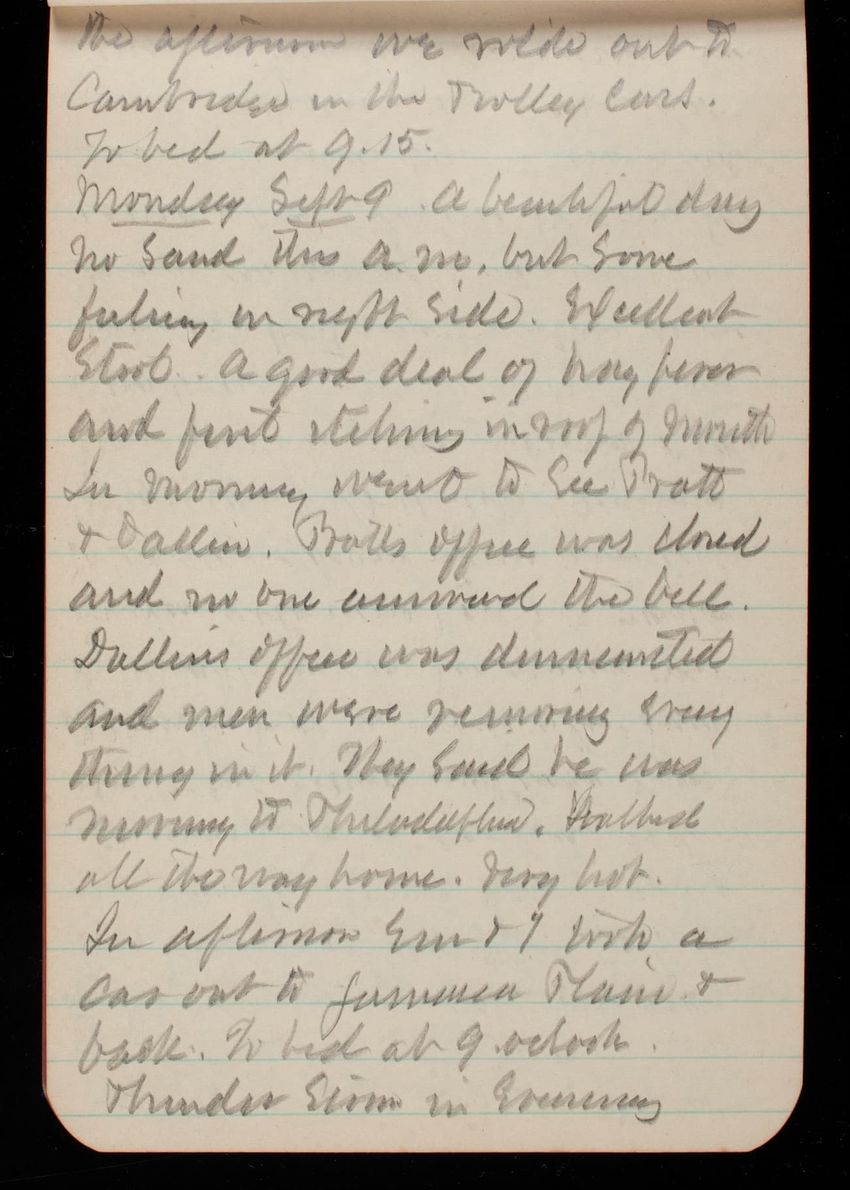 the afternoon we rode out to
Cambridge in the Trolley Cars.
To bed at 9.15.
Monday Sept 9 A beautiful day
No Sand this a.m, but Some
feeling in right Side. Excellent
Stool. A good deal of hay fever
and itching in roof of mouth
In morning went to See Pratt
& Dallin. Pratts office was closed
and no one answered the bell.
Dallins office was dismantled
and men were removing every
thing in it. They Said he was
moving to Philadelphia. Walked
all the way home. Very hot.
In afternoon Em & I took a
Car out to Jamaica Plain &
back. To bed at 9 oclock.
Thunder Storm in Evening